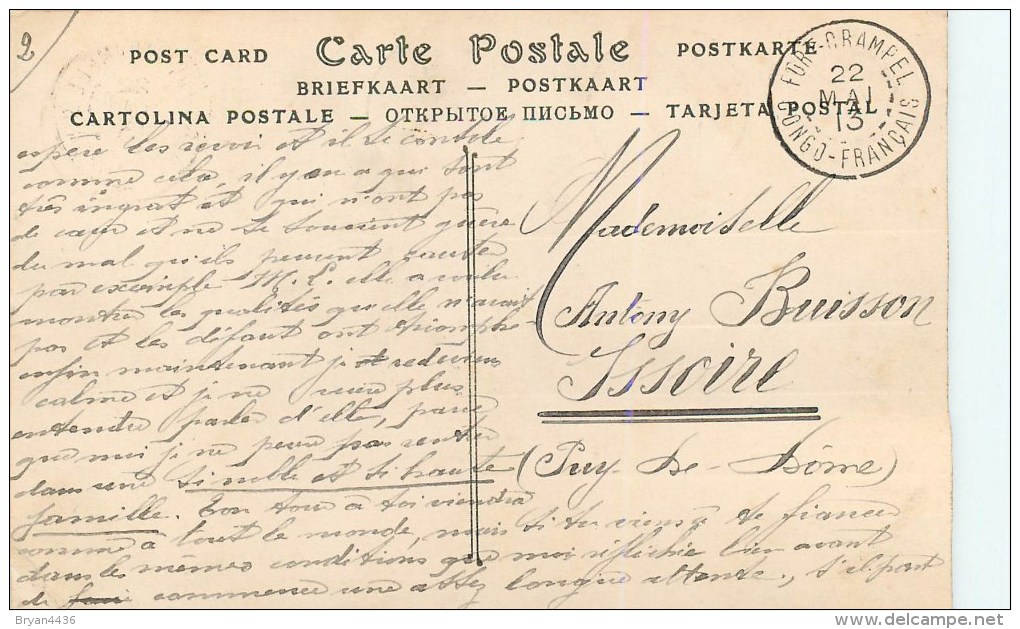 2
POST CARD Carte Postale POSTKARTE
BRIEFKAART — POSTKAART
CARTOLINA POSTALE — ОТКРЫТОЕ ПИСЬМО — TARJETA POSTAL
FORT-CRAMPEL
22
MAI
13
CONGO-FRANÇAIS
espère les revoir et il se console
comme cela, il y en a qui sont
très ingrat et qui n'ont pas
de cœur et ne se souvient guère
du mal qu'ils peuvent causer
par exemple M. L. elle a voulu
montrer les qualités qu'elle n'avait
pas et les défaut ont triomphé
enfin maintenant je redeviens
calme et je ne veux plus
entendre parler d'elle, parce
que moi je ne peux pas rentrer
dans une si noble et si haute
famille. Ton tour à toi viendra
comme à tout le monde, mais si tu viens à te fiancer
dans les mêmes conditions que moi réfléchie bien avant
de commencer une assez longue attente, s'il part
Mademoiselle
Antony Buisson
Issoire
(Puy-de-Dôme)
Bryan4436
delcampe.net